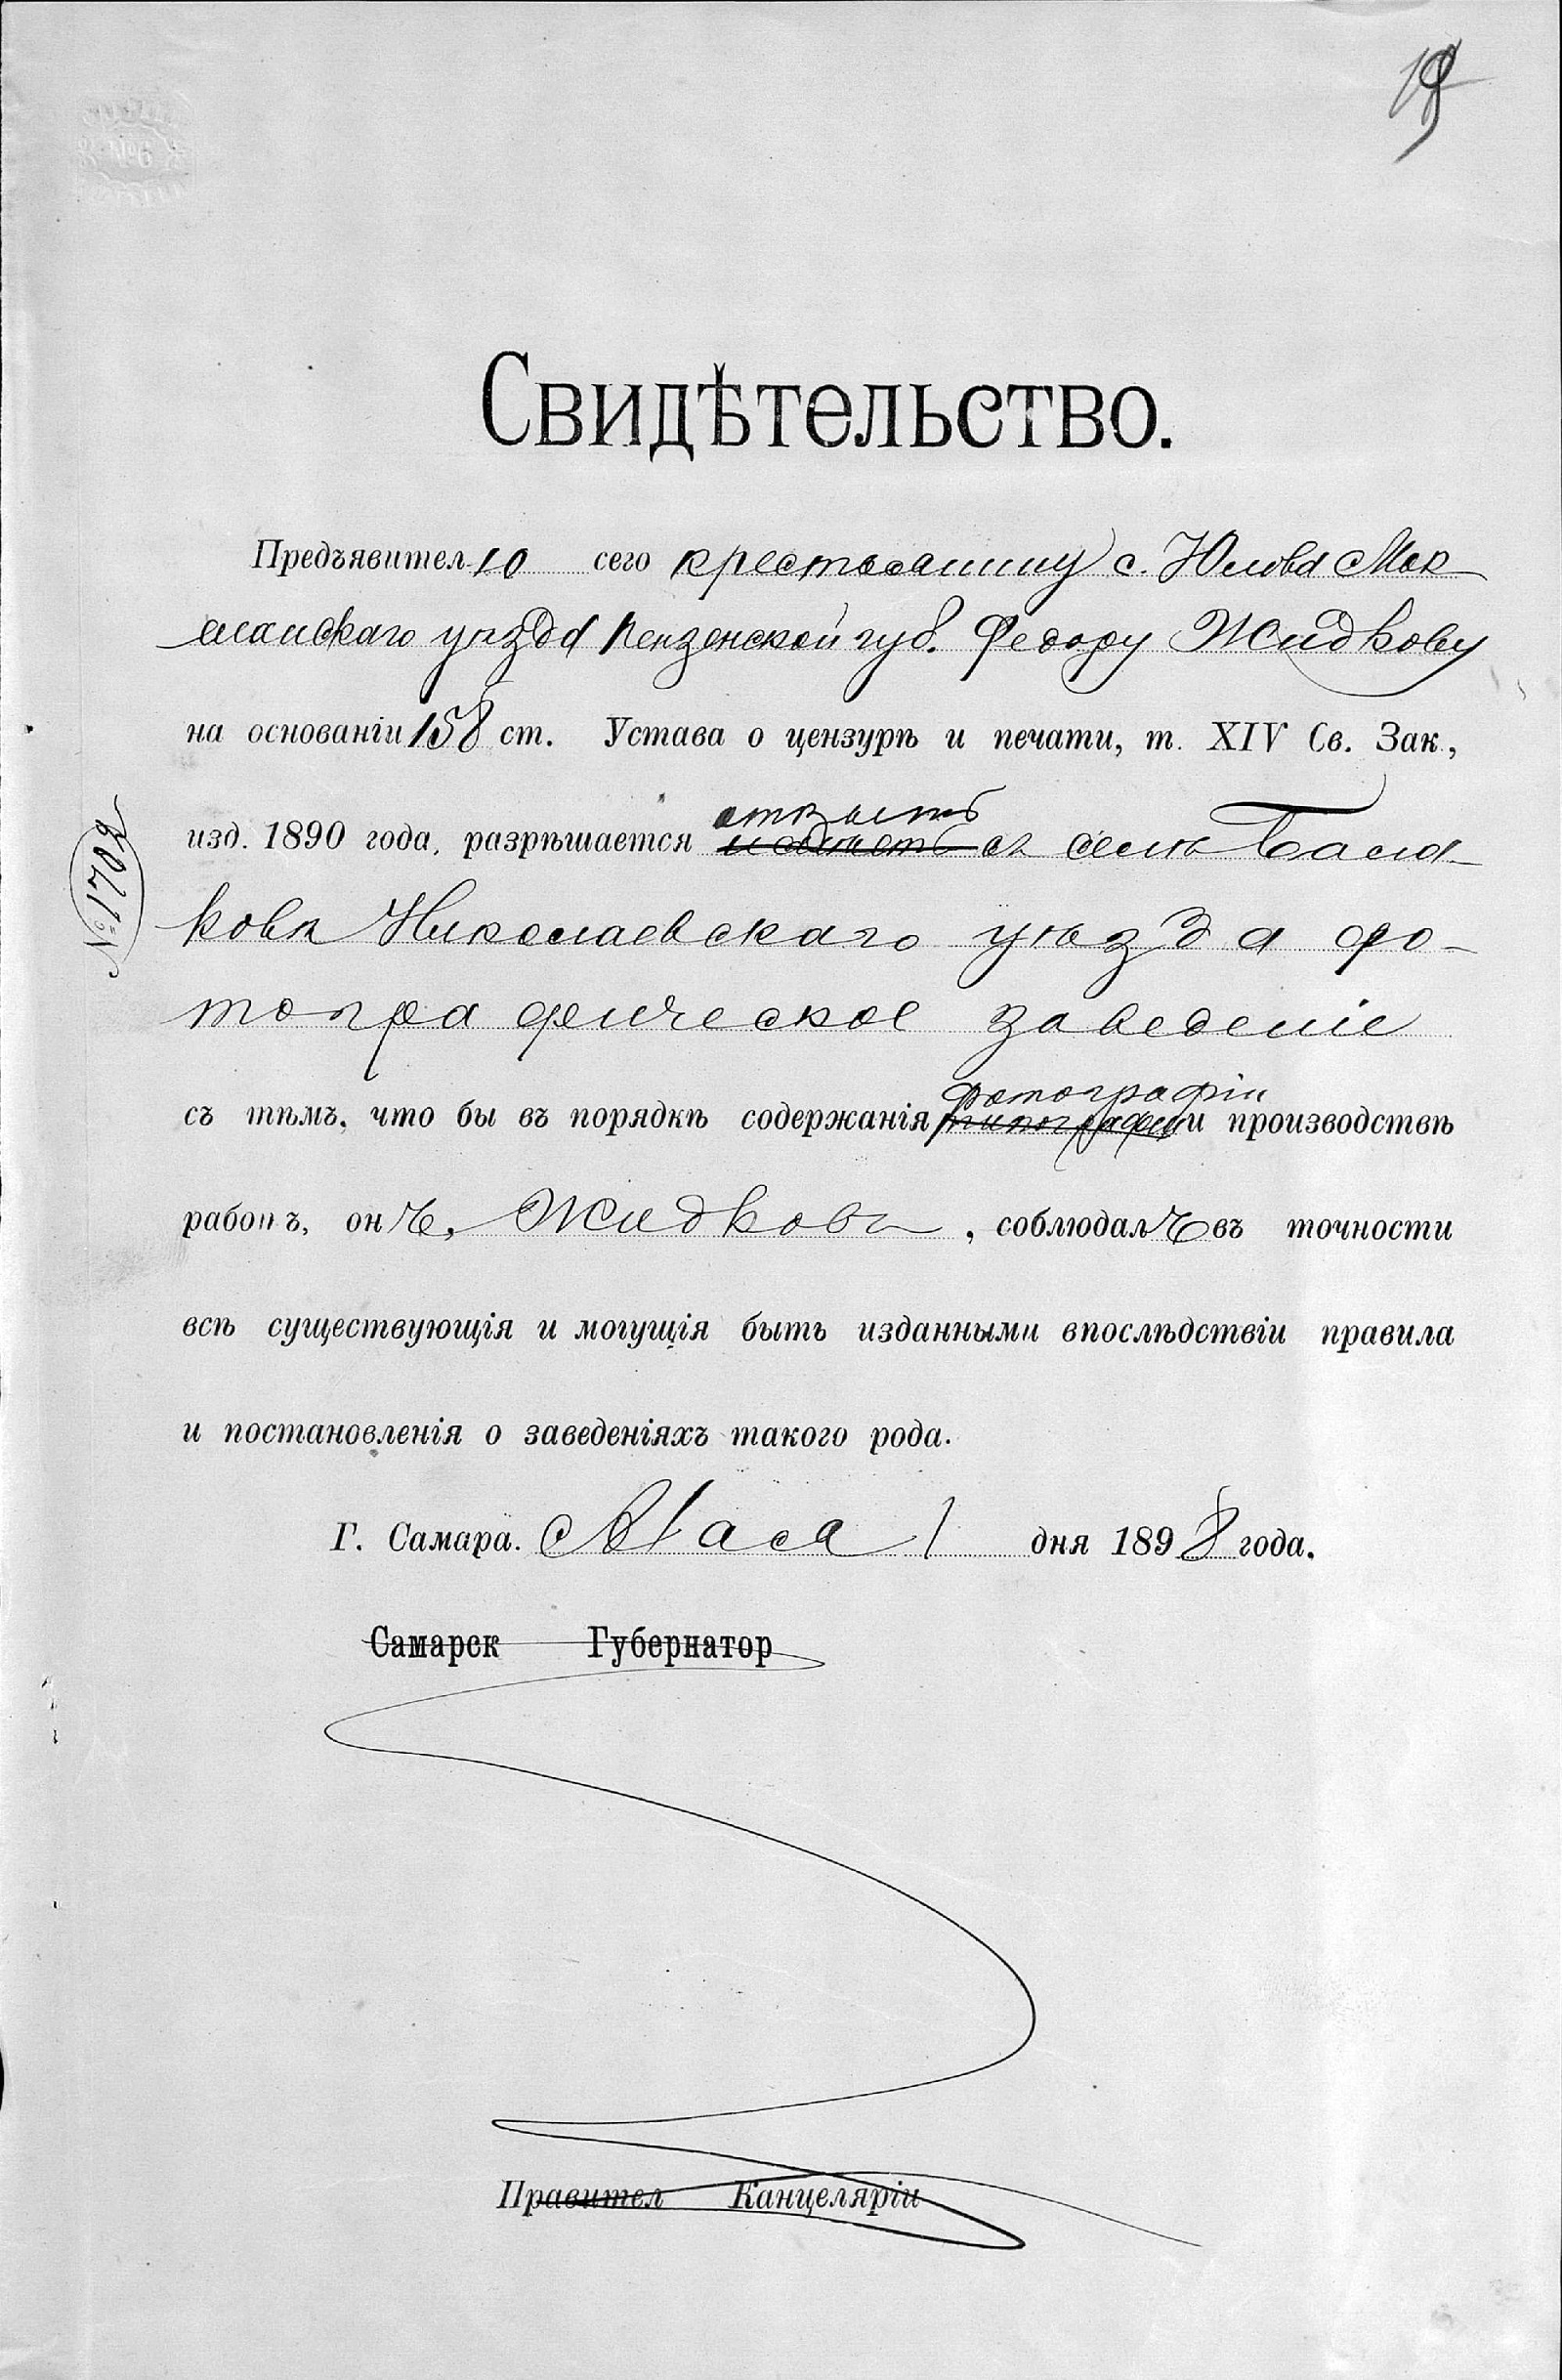 19
Свидѣтельство.
Предъявителю сего крестьянину с. Юлова Мок
шанскаго уѣзда Пензенской губ. Федору Жидкову
на основаніи 158 ст. Устава о цензурѣ и печати, т. XIV Св. Зак.,
открыть
изд. 1890 года, разрѣшается въ селѣ Бала-
ковѣ Николаевскаго уѣзда фо-
тографическое заведеніе
фотографіи
съ тѣмъ, что бы въ порядкѣ содержанія типографіи и производствѣ
работъ, онъ, Жидковъ, соблюдалъ въ точности
всѣ существующія и могущія быть изданными впослѣдствіи правила
и постановленія о заведеніяхъ такого рода.
Г. Самара. Мая 1 дня 1898 года.
Самарск Губернатор
Правител Канцеляріи
№ 1702